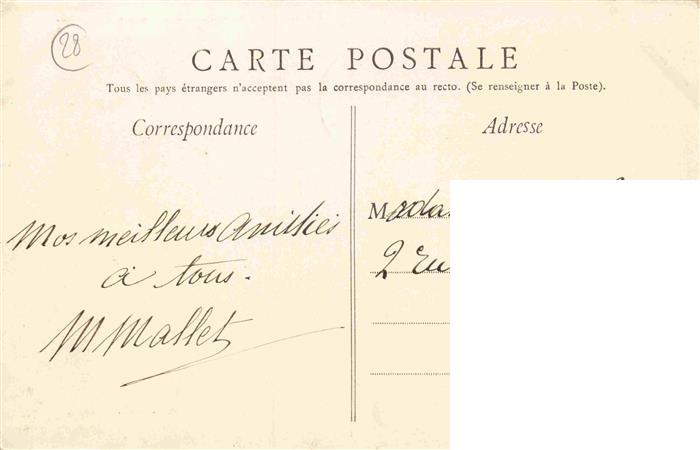 28
CARTE POSTALE
Tous les pays étrangers n'acceptent pas la correspondance au recto. (Se renseigner à la Poste).
Correspondance
Adresse
Mos meilleurs Amitiés
à tous.
M Mallet
Mada
2 ru